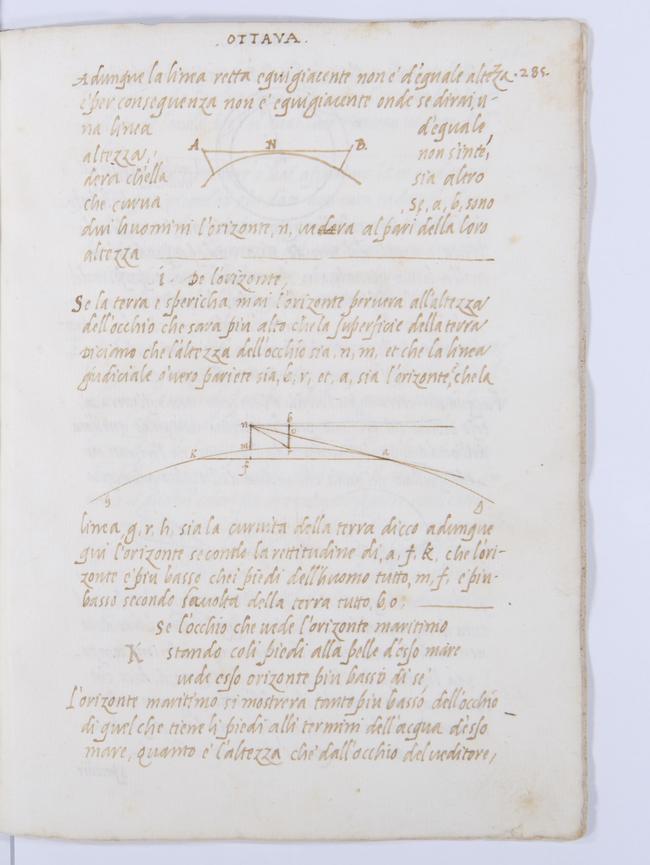 .OTTAVA.
.285.
Adunque la linea retta equigiacente non e' d'eguale altezza
e' per conseguenza non e' equigiacente onde se dirai, u-
na linea d'eguale
altezza, non s'inte,
dera ch'ella sia altro
che curva Se, a, b, sono
A N B.
dui huomini l'orizonte, n, vedera al pari della loro
altezza
i De l'orizonte,
Se la terra e spericha, mai l'orizonte perverà all'altezza
dell'occhio che sara più alto che la superficie della terra
Diciamo che l'altezza dell'occhio sia, n, m, et che la linea
giudiciale overo pariete sia, b, r, et, a, sia l'orizonte, che la
n b
o
m r
k f a
g
linea, g, r, h, sia la curvita della terra dicco adunque
qui l'orizonte secondo la rettitudine di, a, f, k, che l'ori-
zonte e' più basso che i piedi dell'huomo tutto, m, f, e più
basso secondo la volta della terra tutto, b, o,
Se l'occhio che vede l'orizonte maritimo
K stando coli piedi alla pelle d'esso mare
vede esso orizonte più basso di se'
L'orizonte maritimo si mostrera tanto più basso dell'occhio
di quel che tiene li piedi alli termini dell'acqua d'esso
mare, quanto e' l'altezza che' dall'occhio del veditore,